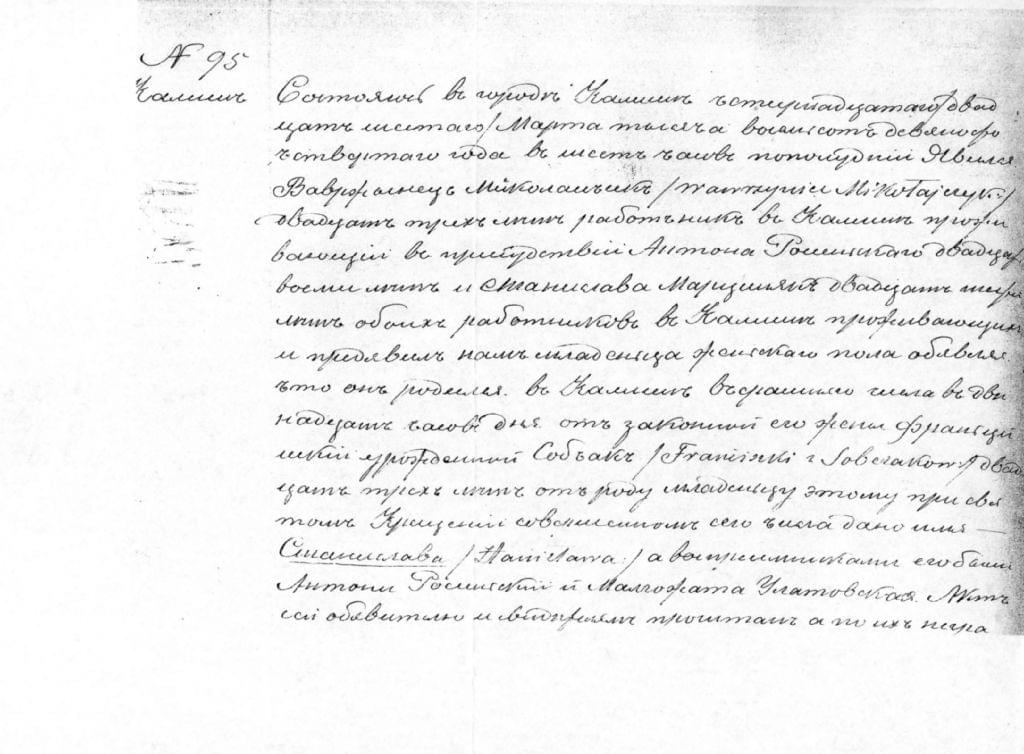 № 95
Калишъ
Состоялось въ городѣ Калишѣ четырнадцатаго /двад
цать шестаго/ Марта тысеча восемсотъ девяносто
четвертаго года въ шесть часовъ пополудній Явился
Вавржынецъ Миколайчикъ /Wawrzyniec Mikołajczyk:/
двадцать трехъ лѣтъ работникъ въ Калишѣ прожи
вающій въ присудствій Антона Росинскаго двадцать
восми лѣтъ и Станислава Марциняка двадцать
лѣтъ обоихъ работниковъ въ Калишѣ проживающихъ
и предявилъ намъ младенца женскаго пола обявляя
что онъ родился въ Калишѣ числа въ две
надцать часовъ дня отъ законной его жены Францѣ
шкій урожденной Собчакъ /Franciszki z Sobczaków:/ двад
цать трехъ лѣтъ отъ роду младенцу этому при свя
томъ Крещеній совершенномъ сего числа дано имя —
Станислава /Stanisława:/ а воспріемниками его были
Антони Росинскій и Малгожата Улатовская. Актъ
сей обявителю и свидѣтелямъ прочитанъ а по ихъ негра